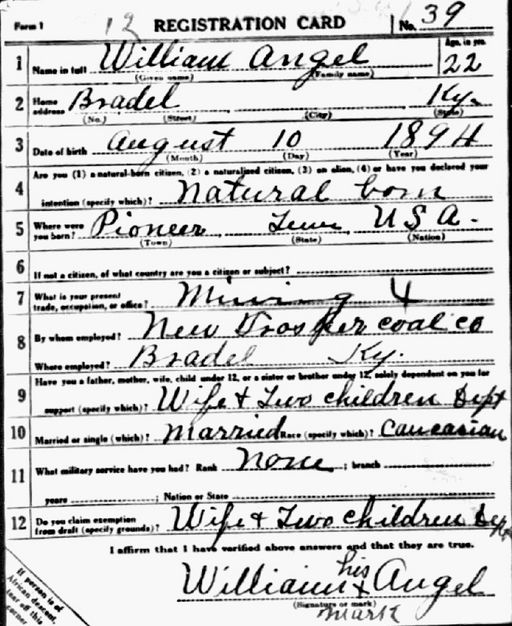 Form 1 12 REGISTRATION CARD No. 39
1 Name in full William Angel Age, in yrs. 22
(Given name) (Family name)
2 Home address Bradel Ky.
(No.) (Street) (City) (State)
3 Date of birth August 10 1894
(Month) (Day) (Year)
Are you (1) a natural-born citizen, (2) a naturalized citizen, (3) an alien, (4) or have you declared your
4 intention (specify which)? Natural born
5 Where were you born? Pioneer Tenn USA.
(Town) (State) (Nation)
6 If not a citizen, of what country are you a citizen or subject?
7 What is your present trade, occupation, or office? Mining
8 By whom employed? New Prosper coal co
Where employed? Bradel Ky.
9 Have you a father, mother, wife, child under 12, or a sister or brother under 12, solely dependent on you for
support (specify which)? Wife & Two children Dept
10 Married or single (which)? Married Race (specify which)? Caucasian
11 What military service have you had? Rank None ; branch
years ; Nation or State
12 Do you claim exemption from draft (specify grounds)? Wife & Two children Dep
I affirm that I have verified above answers and that they are true.
his
William x Angel
(Signature or mark)
mark
If person is of
African descent,
tear off this
corner